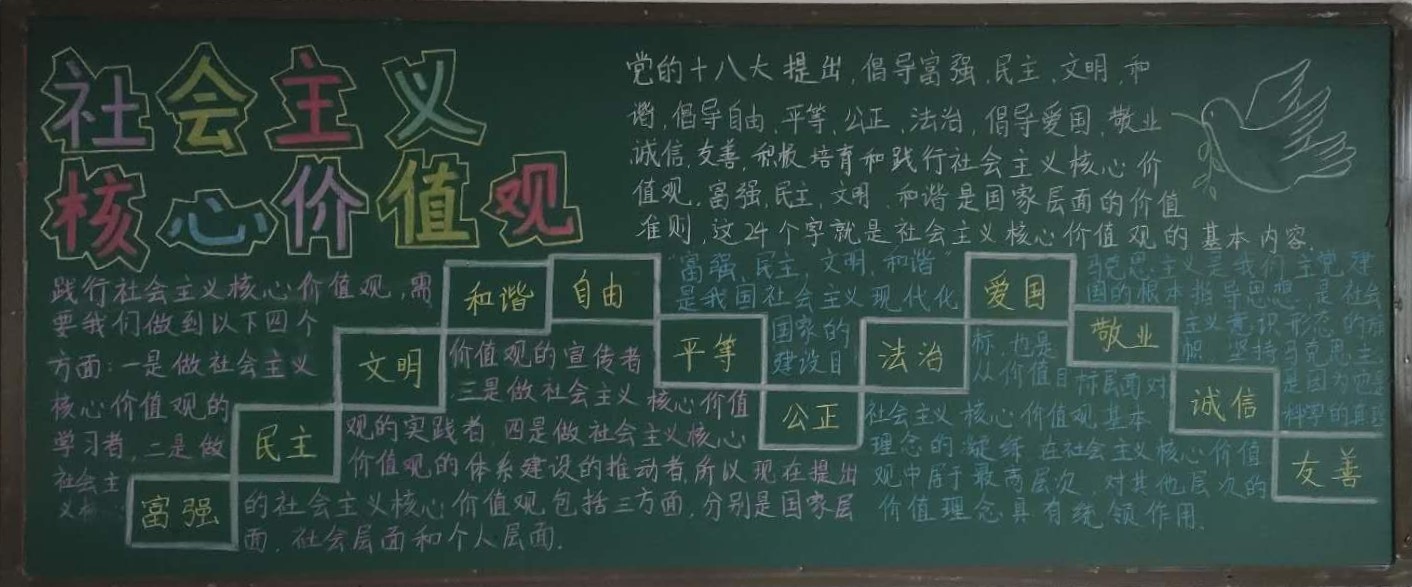 社会主义
核心价值观
党的十八大提出,倡导富强、民主、文明、和
谐,倡导自由、平等、公正、法治,倡导爱国、敬业
诚信、友善,积极培育和践行社会主义核心价
值观。富强、民主、文明、和谐是国家层面的价值
准则,这24个字就是社会主义核心价值观的基本内容.
践行社会主义核心价值观,需
要我们做到以下四个
方面:一是做社会主义
核心价值观的
学习者,二是做
社会主
义核
价值观的宣传者
三是做社会主义核心价值
观的实践者,四是做社会主义核心
价值观的体系建设的推动者,所以现在提出
的社会主义核心价值观包括三方面,分别是国家层
面,社会层面和个人层面.
富强
民主
文明
和谐
自由
平等
公正
法治
爱国
敬业
诚信
友善
"富强、民主、文明、和谐"
是我国社会主义现代化
国家的
建设目
标,也是
从价值目标层面对
社会主义核心价值观基本
理念的凝练,在社会主义核心价值
观中居于最高层次,对其他层次的
价值理念具有统领作用.
马克思主义是我们立党建
国的根本指导思想,是社会
主义意识形态的旗
帜,坚持马克思主
是因为它是
科学的真理